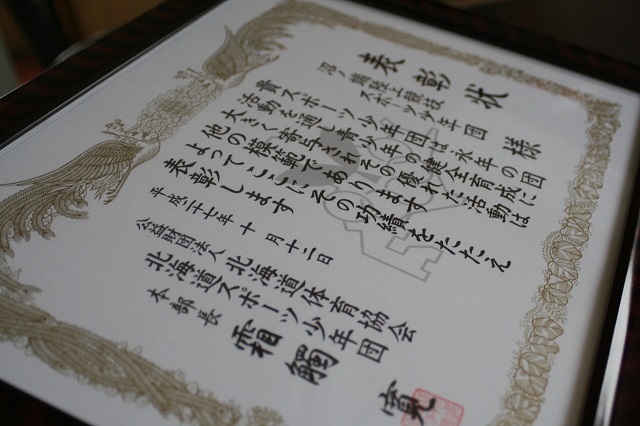 表彰状
沼ノ端陸上競技
スポーツ少年団 様
貴スポーツ少年団は永年の団
活動を通し青少年の健全育成に
大きく寄与されその優れた活動は
他の模範であります
よってここにその功績をたたえ
表彰します
平成二十七年十月十二日
公益財団法人
北海道体育協会
北海道スポーツ少年団
本部長
霜觸 寛